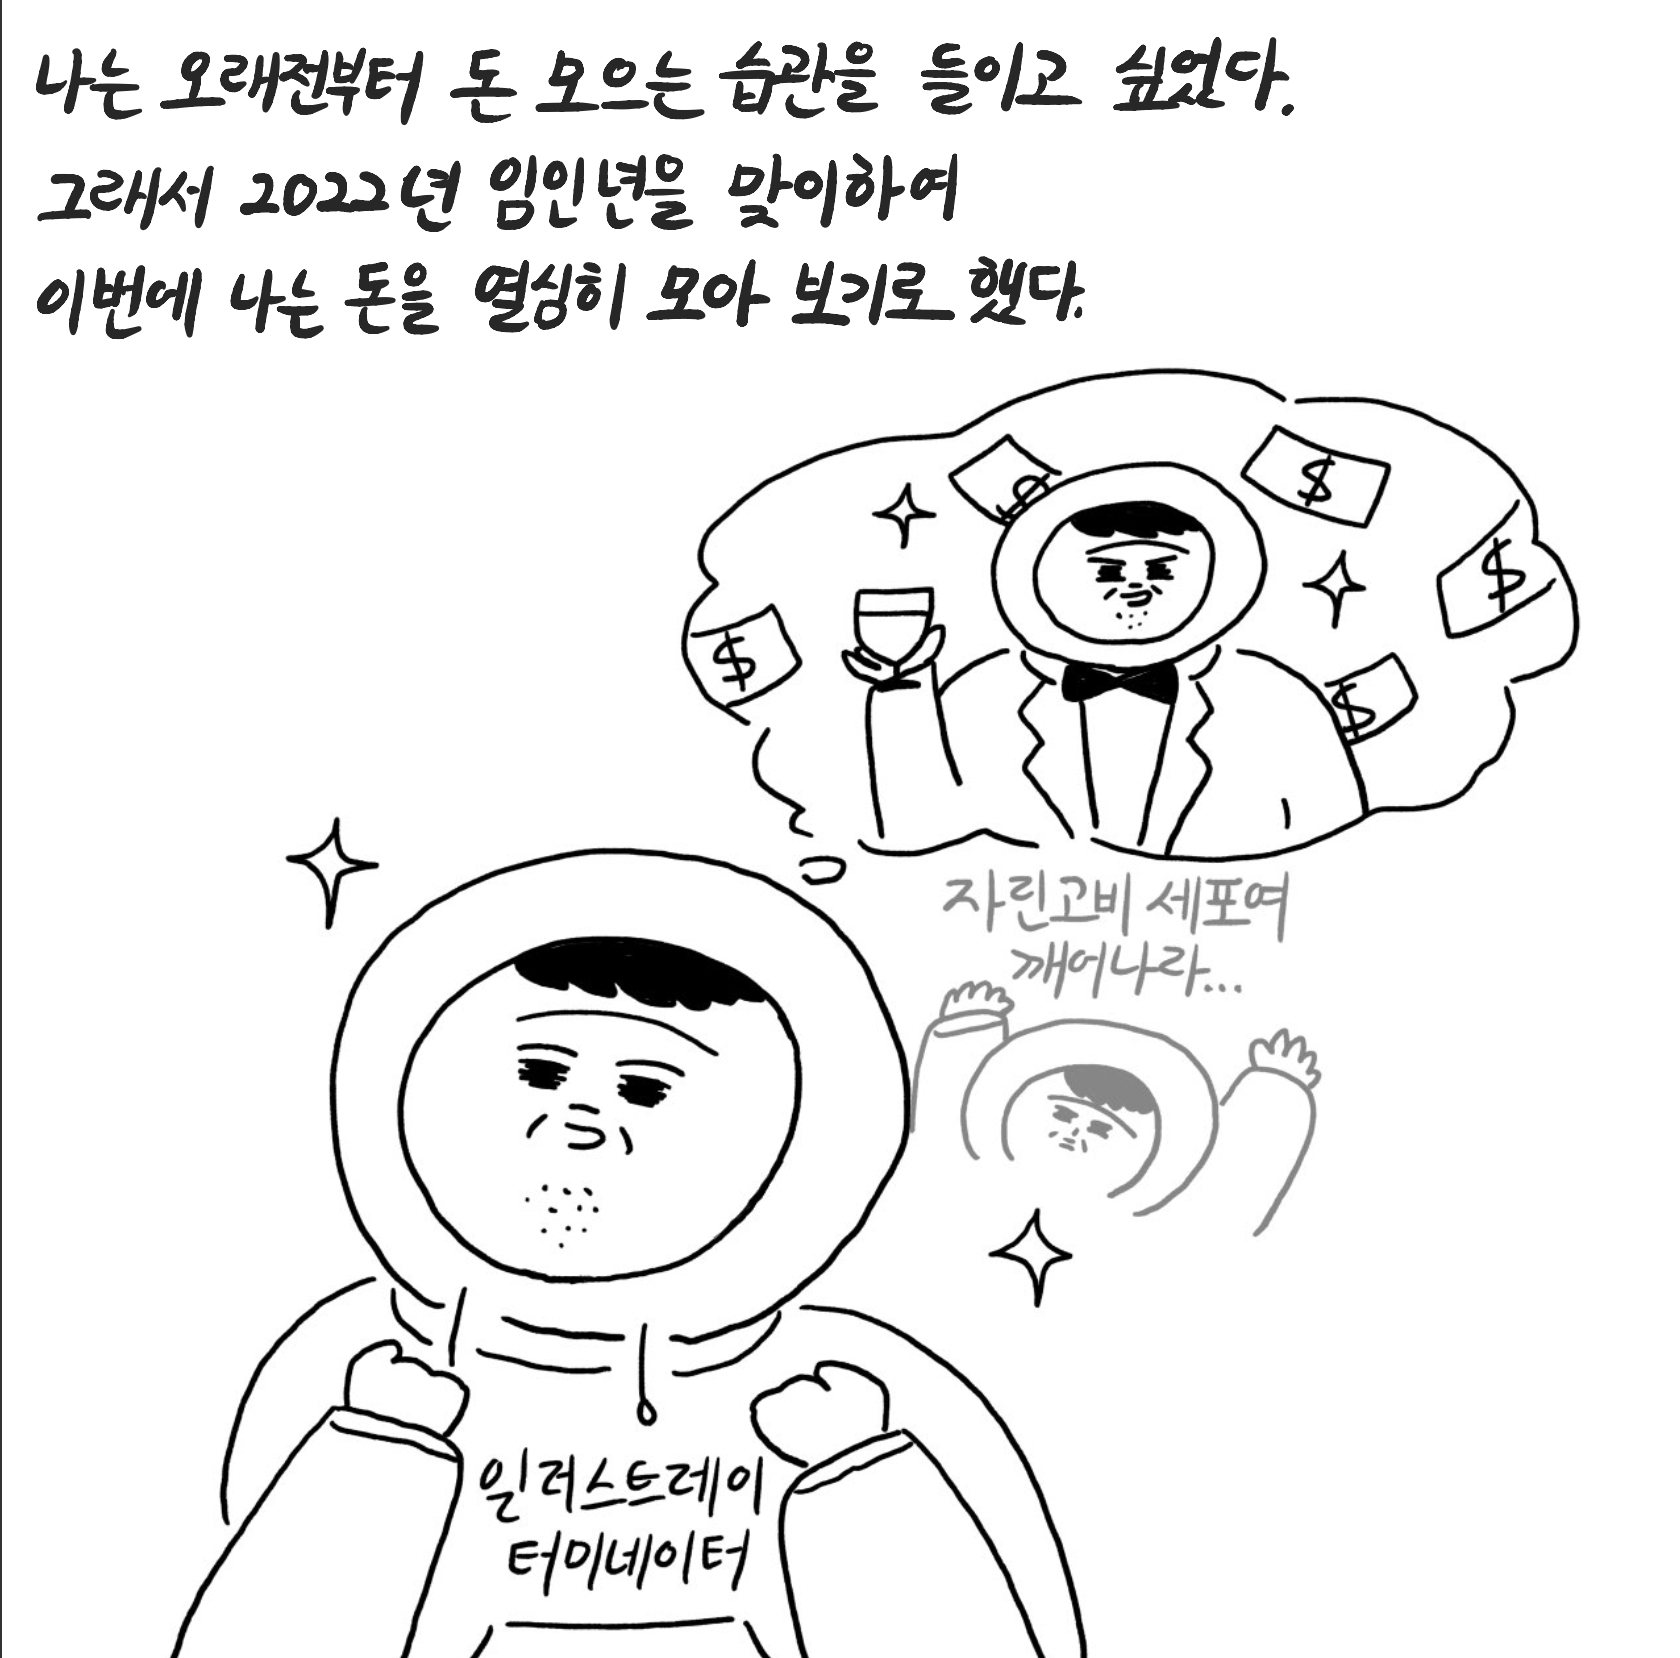 나는 오래전부터 돈 모으는 습관을 들이고 싶었다.
그래서 2022년 임인년을 맞이하여
이번에 나는 돈을 열심히 모아 보기로 했다.
$
$
$
$
$
자린고비 세포여
깨어나라...
일러스트레이
터미네이터